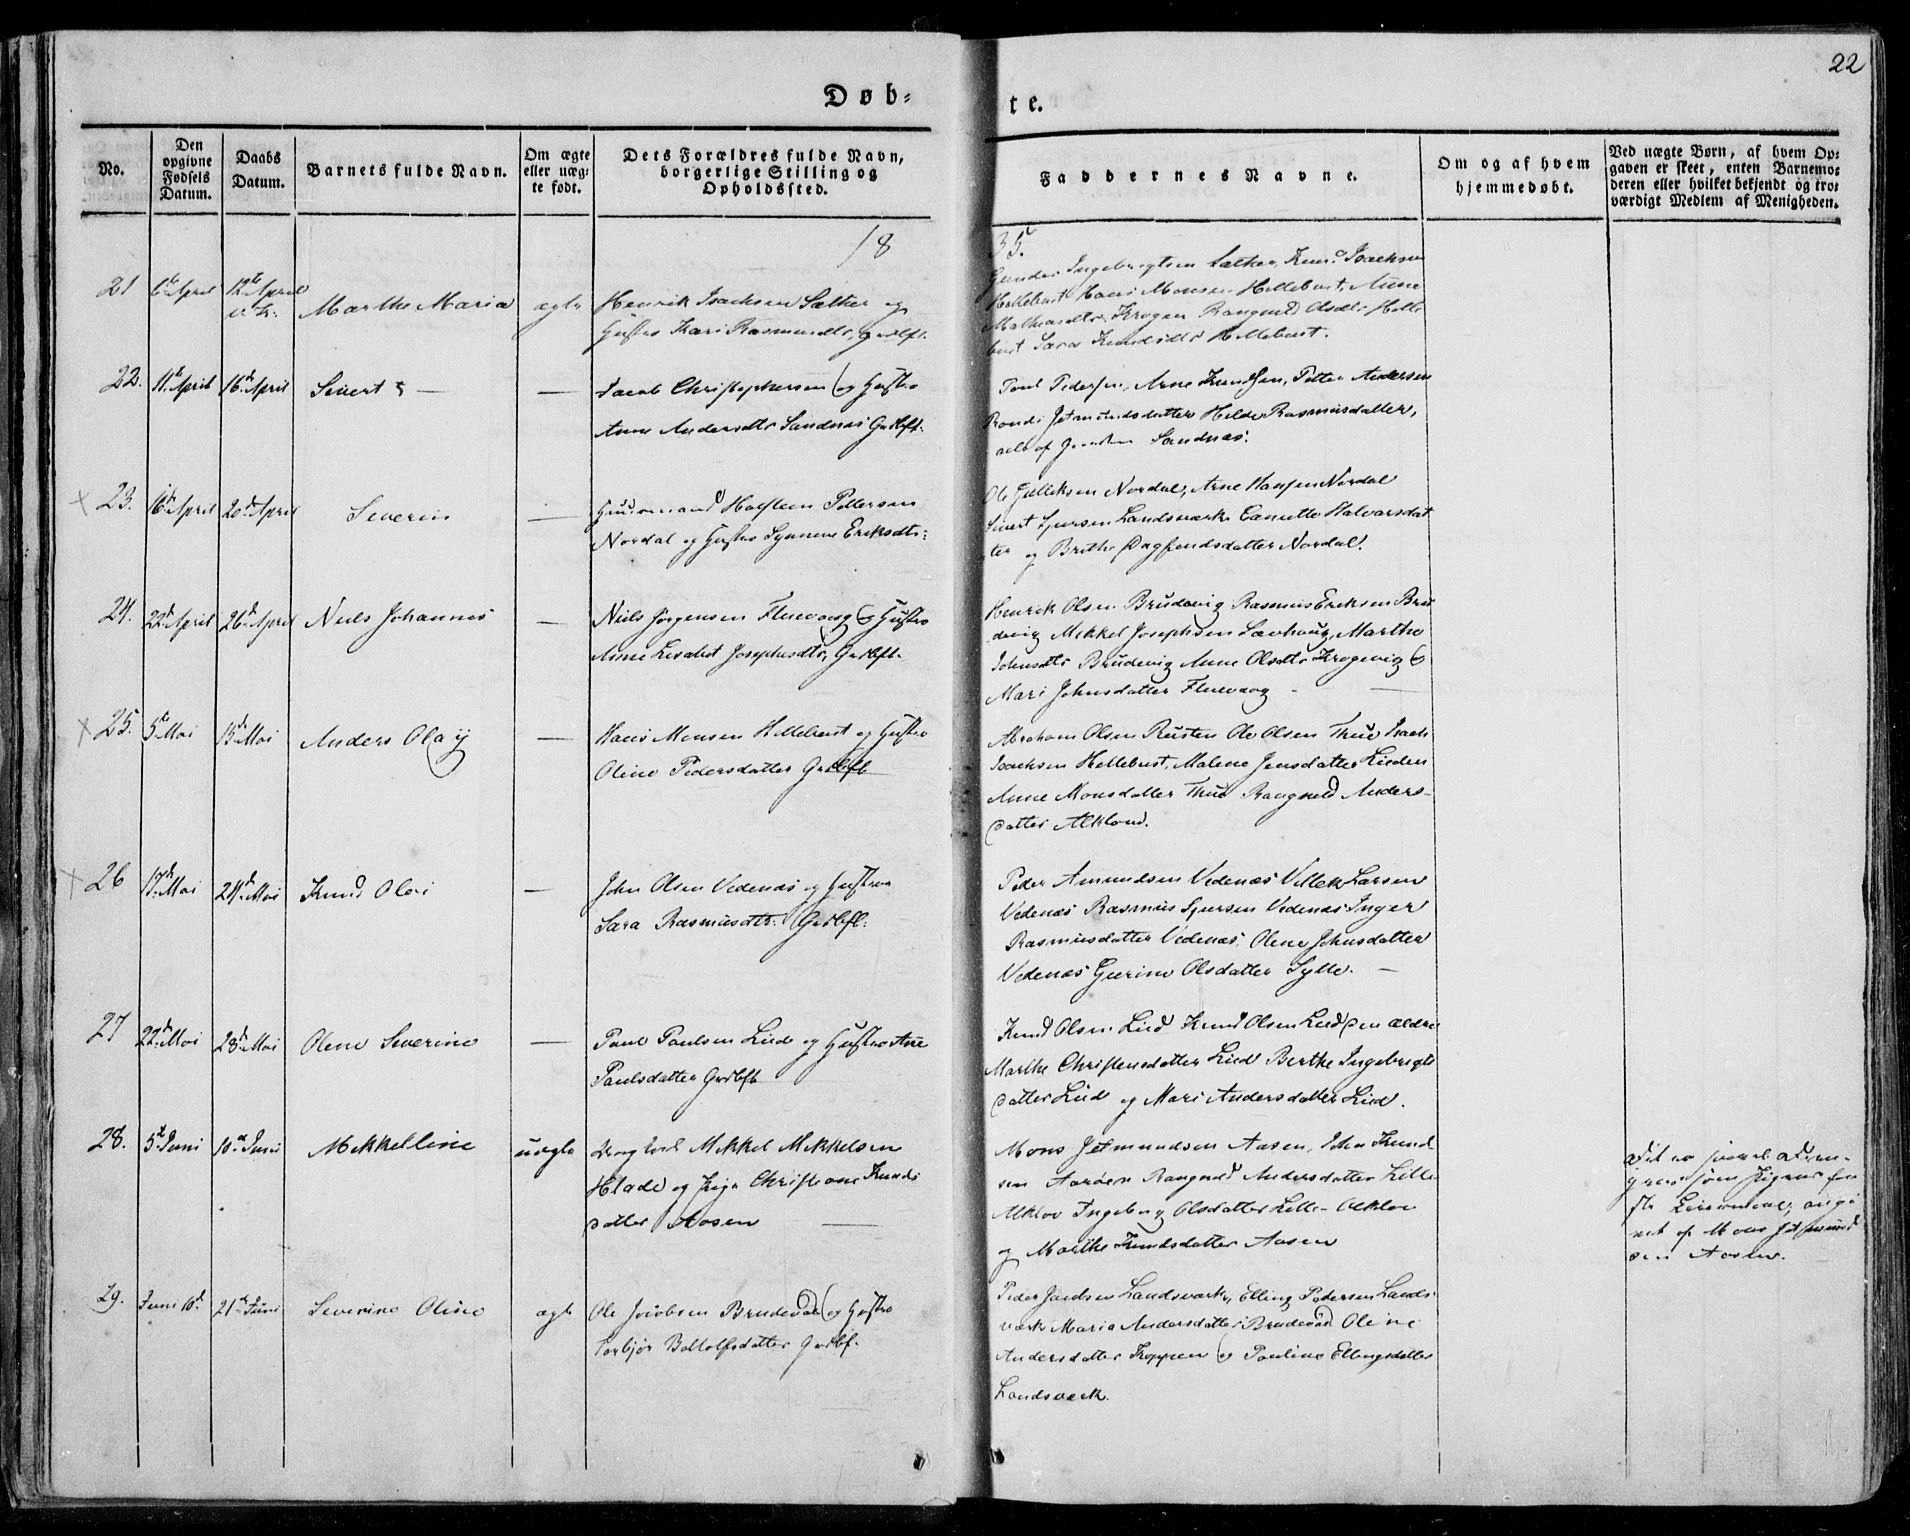 22
Døb-
te.
No.
Den opgivne Fødsels Datum.
Daabs Datum.
Barnets fulde Navn.
Om ægte eller uæg-te født.
Dets Forældres fulde Navn, borgerlige Stilling og Opholdssted.
Faddernes Navne.
Om og af hvem hjemmedøbt.
Ved uægte Børn, af hvem Op-gaven er skeet, enten Barnemo-deren eller hvilket bekjendt og tro-værdigt Medlem af Menigheden.
18
35.
21 6te April 12te April Marthe Maria ægte Henrik Isachsen Sæther og
Hustro Kari Rasmusdtr, Grdbft.
Ingebregtsen Sæther, Knud Isachsen
Hellebust Hans Monsen Hellebust, Anne
Mathiasdtr Krogen Rangnild Olsdtr Helle
bust Sara Knudsdtr Hellebust.
22. 11te April 16d April Siuert — — Jacob Christophersen og Hustro
Anne Andersdtr Sandnæs Grdbft.
Poul Pedersen, Arne Knudsen, Petter Andersen
Jetmundsdatter Hilde Rasmusdatter,
Sandnæs.
23. 16d April 20d April Severin — Huusmand Halsteen Pettersen
Nordal og Hustro Synneve Eriksdtr.
Ole Gulliksen Nordal, Arne Hansen Nordal
Siuert Sjursen Landsværk Canutte Halvarsdat
ter og Brithe Dagfindsdatter Nordal.
24. 22d April 26d April Niels Johannes — Niels Jørgensen Fluevaag og Hustro
Anne Lisabet Josephsdtr, Grdbft.
Henrik Olsen Brudevig Rasmus Eriksen Bru
devig Mikkel Josephsen Løvhoug, Marthe
Johnsdtr Brudevig Anne Olsdtr Krogevig og
Mari Johnsdatter Fluevaag —
25. 5te Mai 15d Mai Anders Olaij — Hans Monsen Hellebust og Hustro
Oline Pedersdatter Grdbft
Abraham Olsen Rusten Ole Olsen Thue Isach
Isachsen Hellebust, Malene Jensdatter Lieden
Anne Monsdatter Thue Rangnild Anders-
datter Alkloud.
26 17d Mai 24d Mai Knud Olai — John Olsen Vedenæs og Hustro
Sara Rasmusdtr. Grdbft.
Peder Amundsen Vedenæs Villek Larsen
Vedenæs Rasmus Sjursen Vedenæs Inger
Rasmusdatter Vedenæs. Olene Johnsdatter
Vedenæs Gurine Olsdatter Sylte. —
27 22d Mai 28d Mai Olene Severine — Paul Paulsen Lied og Hustro Ane
Paulsdatter Grdbft
Knud Olsen Lied Knud Olsen Lied den ældre
Marthe Christensdatter Lied Berthe Ingebregts
datter Lied og Mari Andersdatter Lied.
28. 5te Juni 10d Juni Mekkelline uægte Mikkel Mikkelsen
Hlade og Pige Christiane Knuds
datter Aasen —
Mons Jetmundsen Aasen, John Knud
sen Aarøen Rangnild Andersdatter Lille
Alkloe Ingeborg Olsdatter Lille-Alkloe
og Marthe Knudsdatter Aasen
Det er
Pigens før
ste Leiermaal, angi
vet af Mons Jetmund
sen Aasen.
29. Juni 10d 21de Juni Severine Oline ægte Ole Jacobsen Brudevold og Hustro
Torbjør Botolfsdatter Grdbf.
Peder Jacobsen Landsværk, Elling Pedersen Lands-
værk Maria Andersdatter Brudevold Oline
Andersdatter Kroppen og Pauline Ellingsdatter
Landsværk.